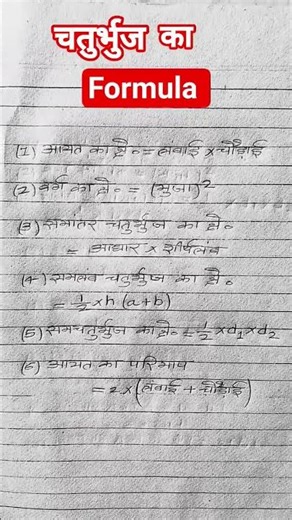 चतुर्भुज का
Formula
(1) आयत का क्षे० = लंबाई × चौड़ाई
(2) वर्ग का क्षे० = (भुजा)²
(3) समांतर चतुर्भुज का क्षे०
= आधार × शीर्षलंब
(4) समलंब चतुर्भुज का क्षे०
= 1/2 × h (a+b)
(5) समचतुर्भुज का क्षे० = 1/2 × d₁ × d₂
(6) आयत का परिमाप
= 2 × (लंबाई + चौड़ाई)